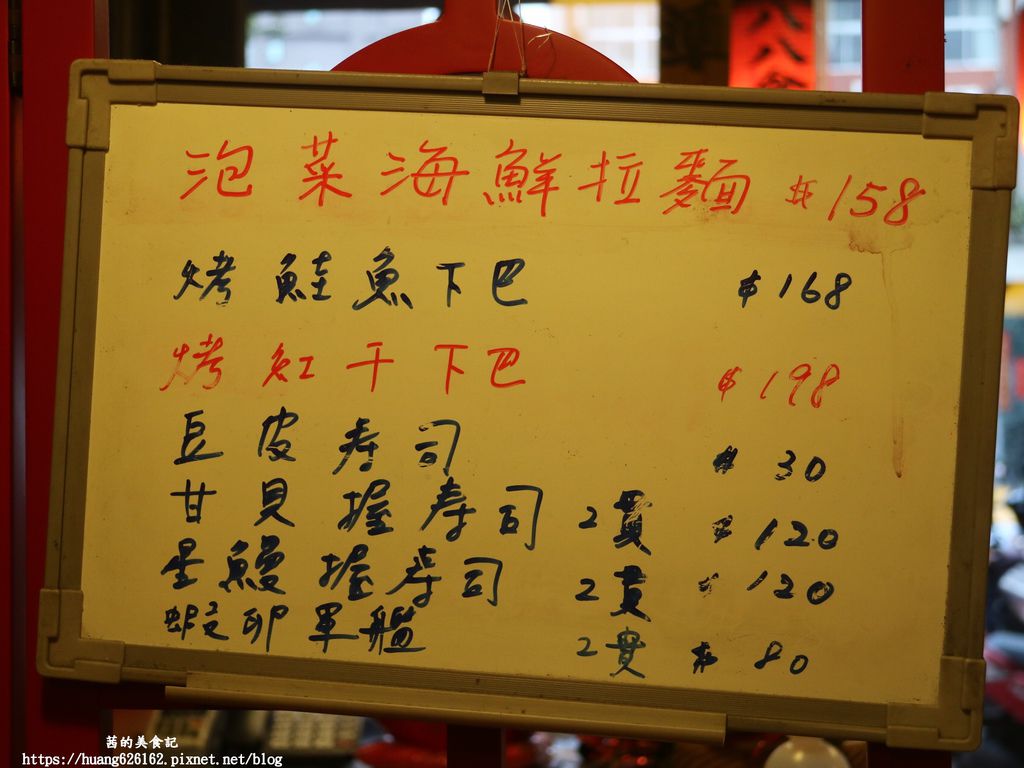 八八食
泡菜海鮮拉麵 $158
烤鮭魚下巴 $168
烤紅干下巴 $198
豆皮寿司 $30
甘貝握寿司 2貫 $120
星鰻握寿司 2貫 $120
蝦卵軍艦 2貫 $80
茜的美食記
https://huang626162.pixnet.net/blog